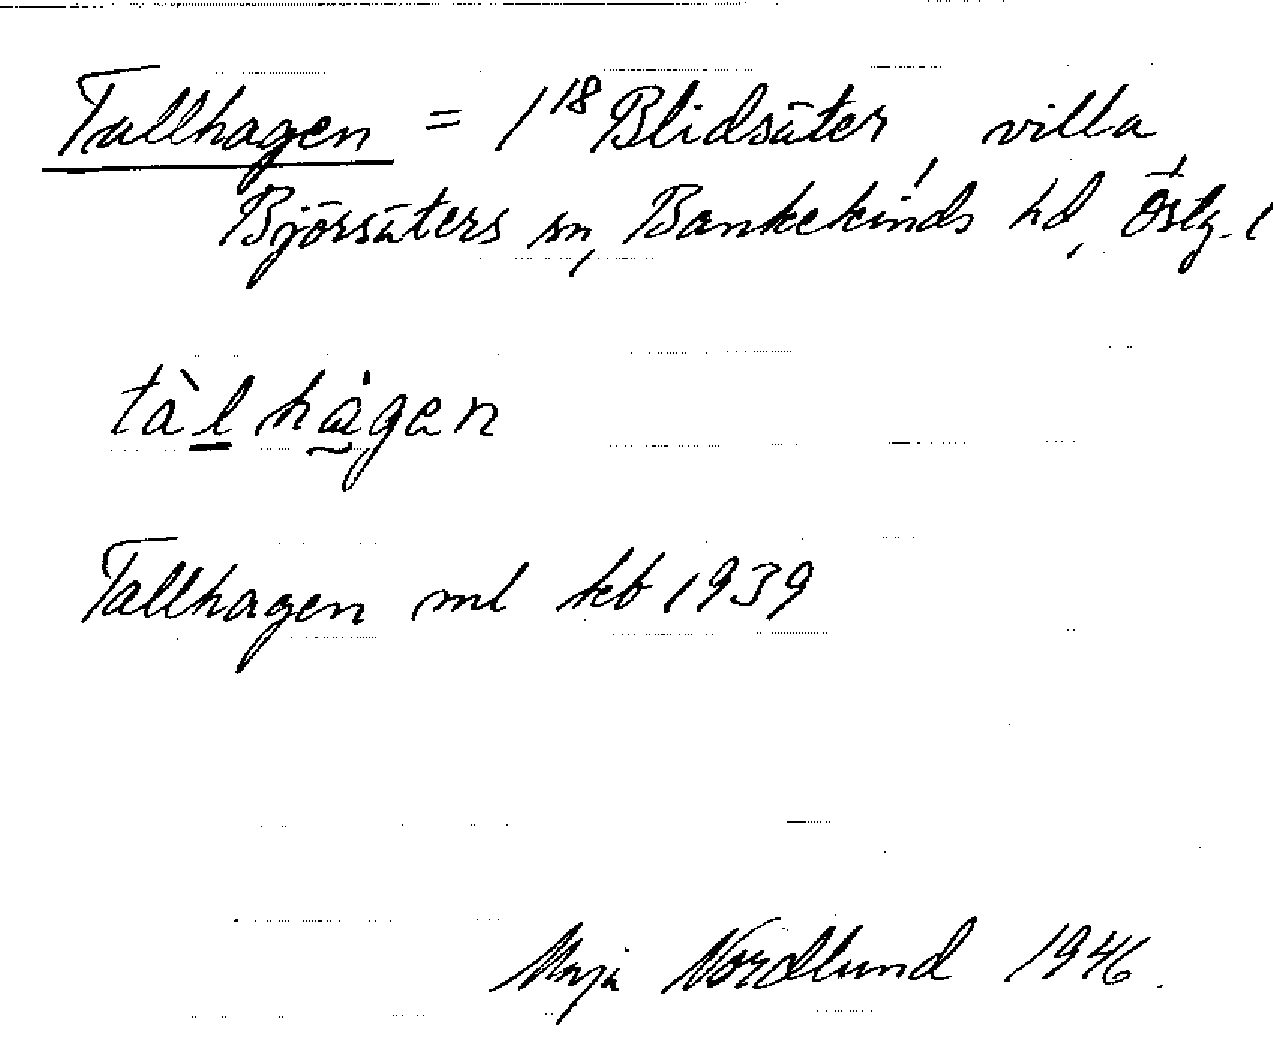 Tallhagen = 1¹⁸ Blidsäter, villa
Björsäters sn, Bankekinds hd, Östg. l
tàl hágen
Tallhagen ml kb 1939
Maja Nordlund 1946.